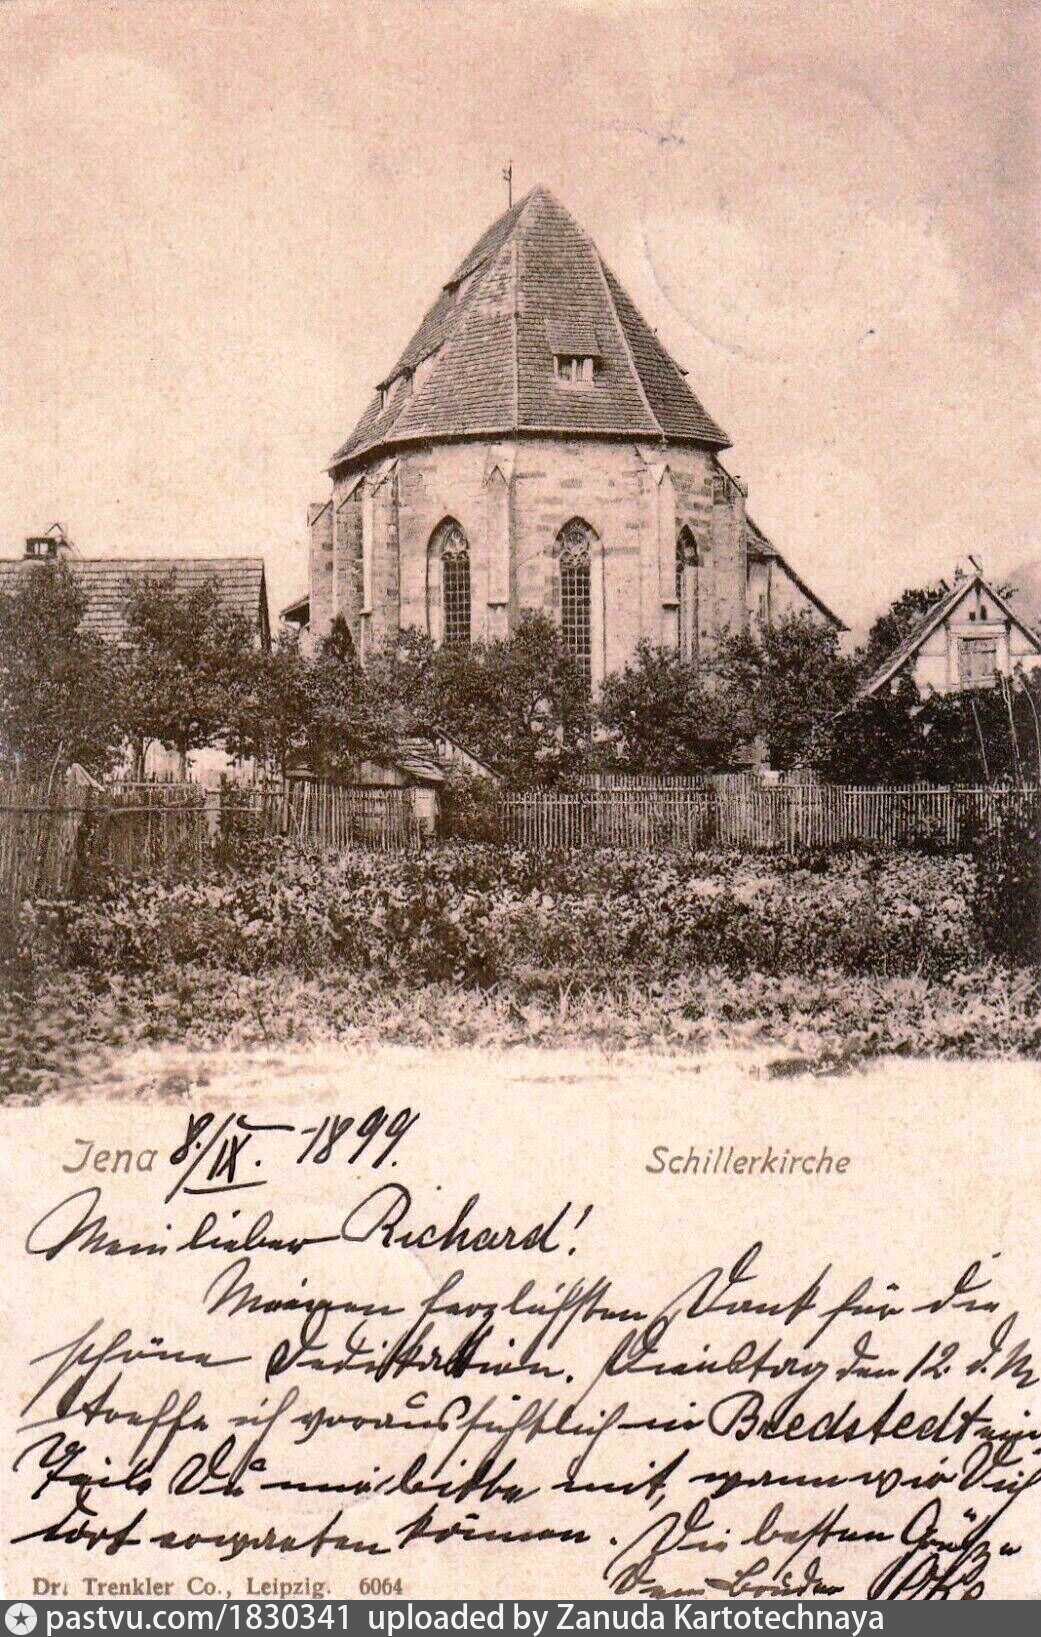 Jena 8./IX. -1899.
Schillerkirche
Mein lieber Richard!
Meinen herzlichsten Dank für die
schöne Dedikation. Dienstag den 12. d. M
treffe ich voraussichtlich in Bredstedt ein
Teile Du mir bitte mit, wann wir Dich
dort erwarten können. Die besten Grüsse
Dein Bruder
Dr. Trenkler Co., Leipzig. 6064
pastvu.com/1830341 uploaded by Zanuda Kartotechnaya